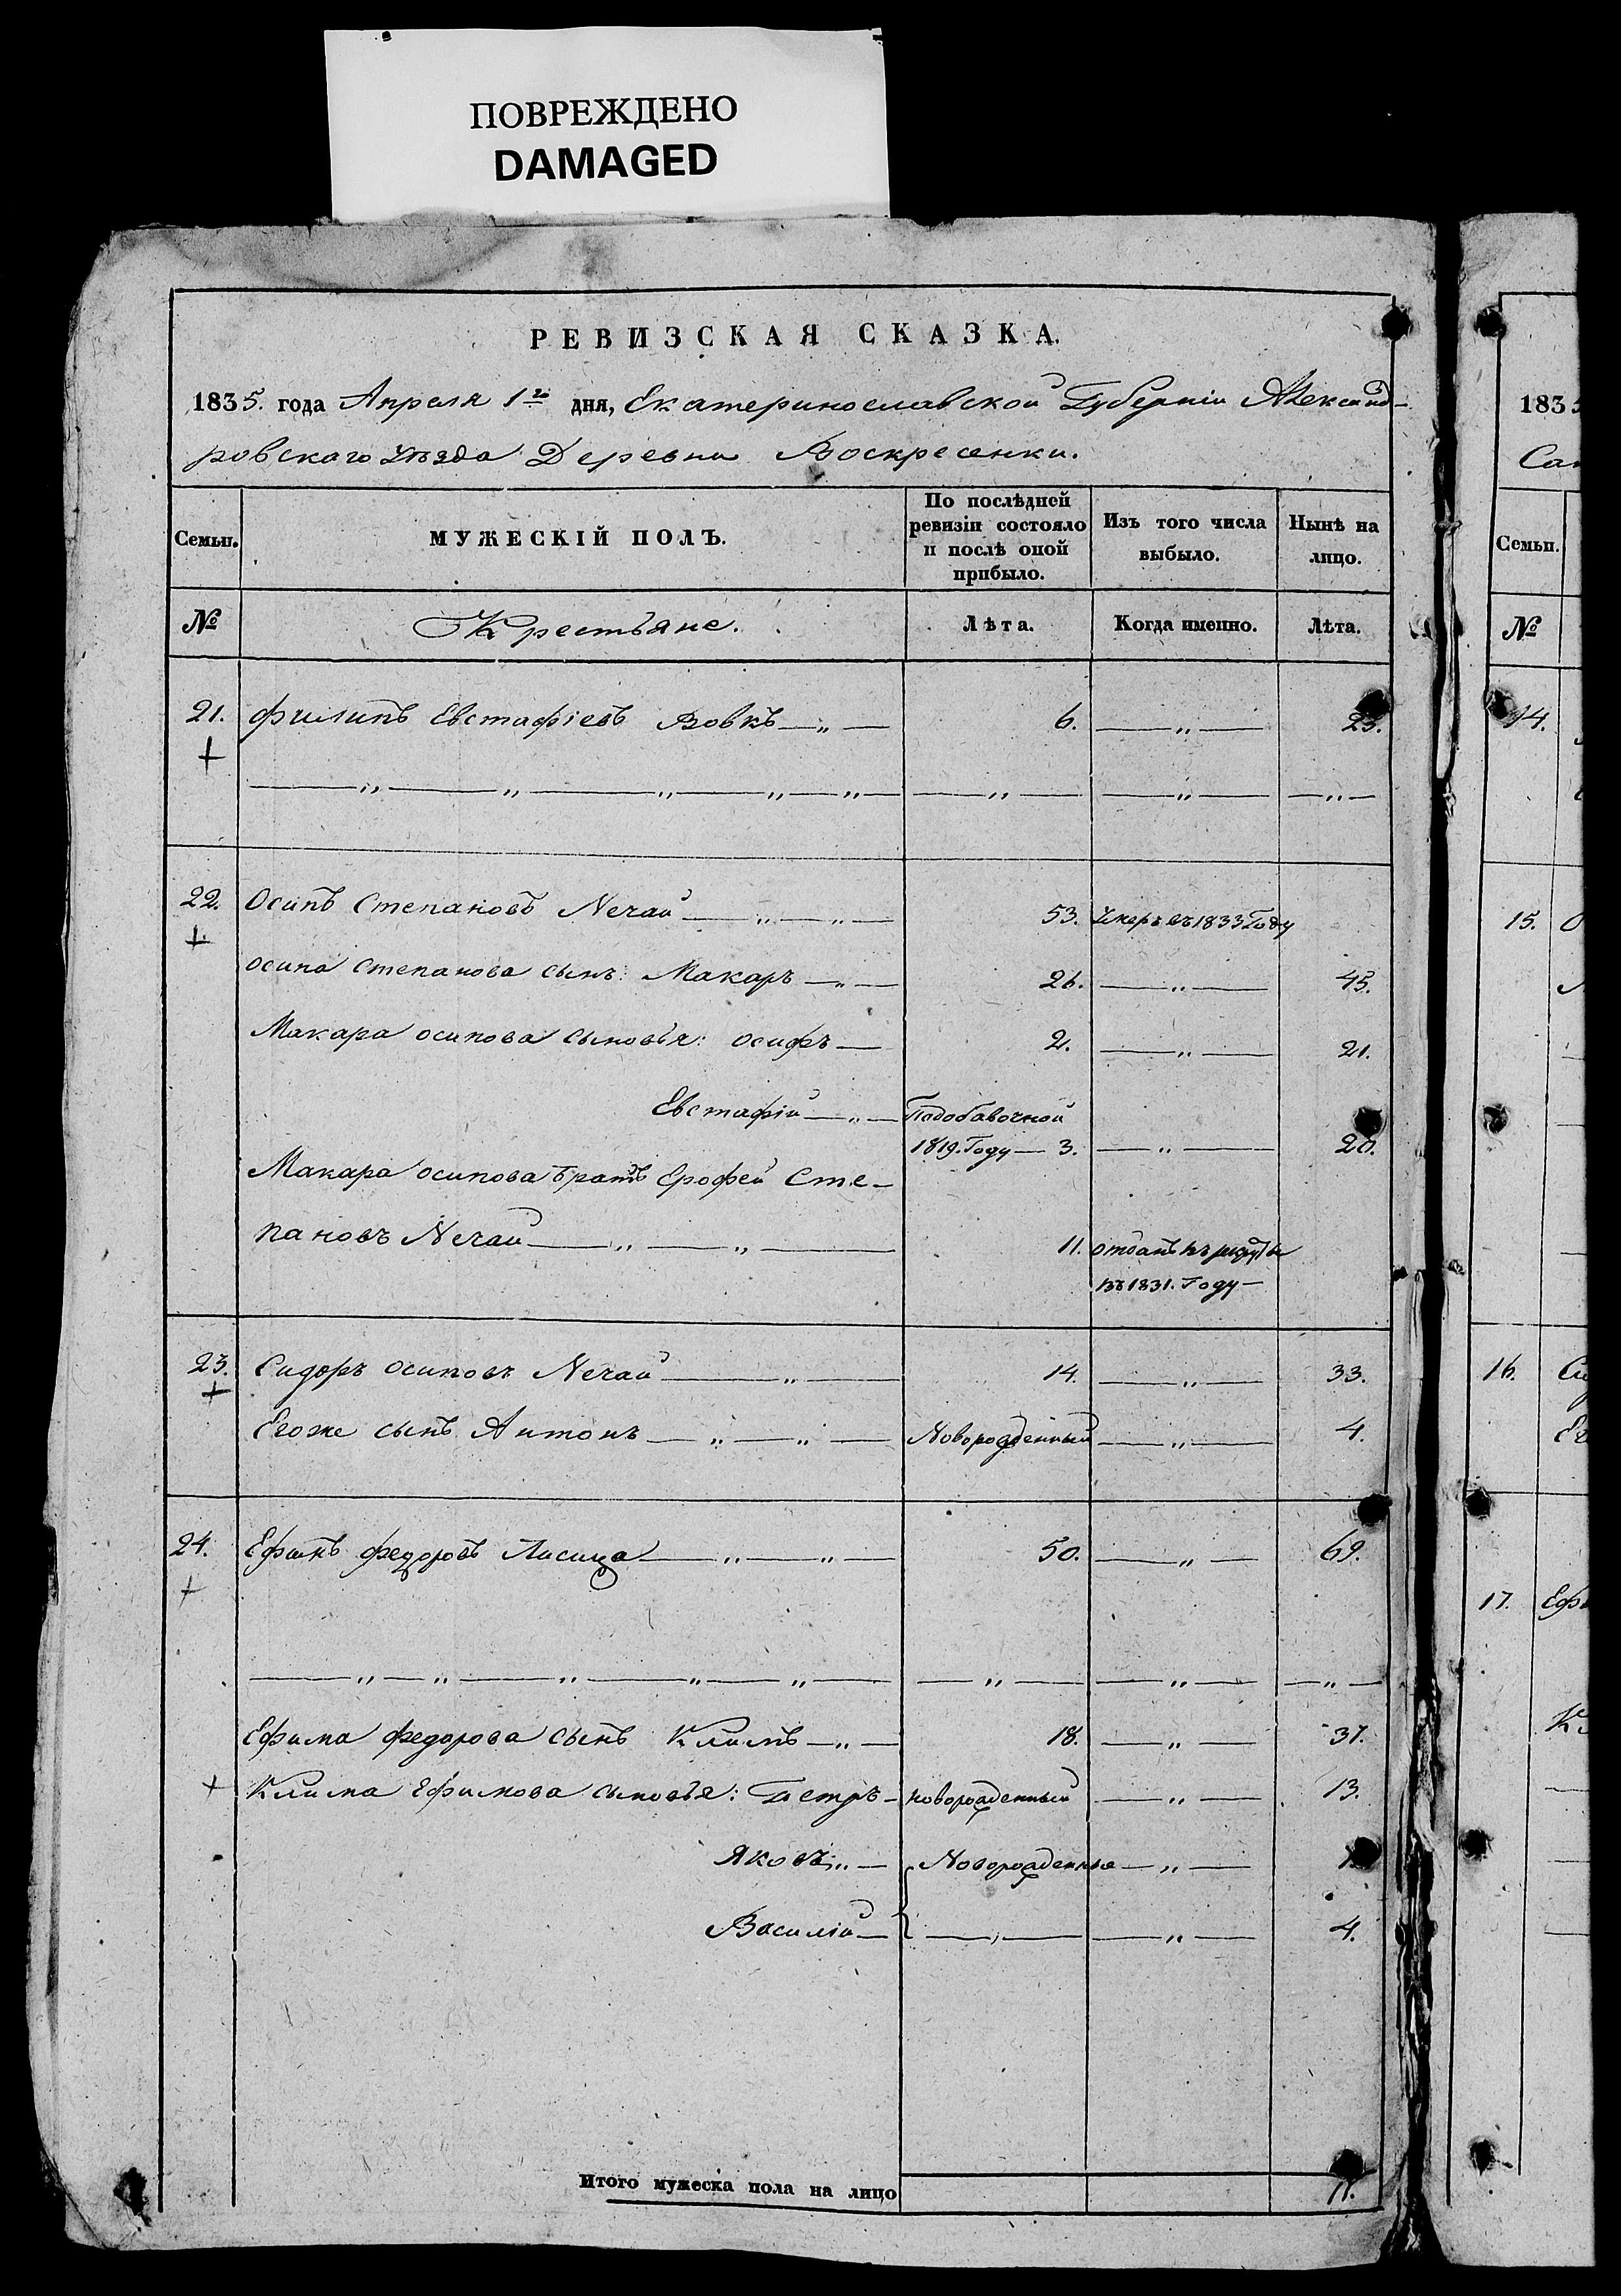 ПОВРЕЖДЕНО
DAMAGED
РЕВИЗСКАЯ СКАЗКА.
1835. года Апреля 1го дня, Екатеринославской Губерніи Александ-
ровскаго Уѣзда Деревни Воскресенки.
Семьи. МУЖЕСКІЙ ПОЛЪ. По послѣдней ревизіи состояло и послѣ оной прибыло. Изъ того числа выбыло. Нынѣ на лицо.
№ Крестьяне. Лѣта. Когда именно. Лѣта.
21. Филипъ Евстафіевъ Вовкъ —„— 6. —„— 25.
+
—„—„—„—„—„— —„— —„— —„—
22. Осипъ Степановъ Нечай —„—„— 53. Умеръ въ 1833 Году
+
осипа Степанова сынъ: Макаръ —„— 26. —„— 45.
Макара осипова сыновья: осифъ — 2. —„— 21.
Евстафій —„— Подобавочной
1819. Году — 3. —„— 20.
Макара осипова братъ Ерофей Сте-
пановъ Нечай —„—„— 11. отданъ въ
въ 1831. Году —
23. Сидоръ осиповъ Нечай —„— 14. —„— 33.
+
Егоже сынъ Антонъ —„—„— Новорожденный —„— 4.
24. Ефимъ федоровъ Лисица —„—„— 50. —„— 69.
+
—„—„—„—„—„— —„— —„— —„—
Ефима федорова сынъ Климъ —„— 18. —„— 37.
+ Клима Ефимова сыновья: Петръ — новорожденный —„— 13.
Яковъ „— Новорожденные —„—
Василій — —„— —„— 4.
Итого мужеска пола на лицо 11.
1835
Сем
Семьи.
№
14.
15. О
16. Си
Ег
17. Ефи
Кл